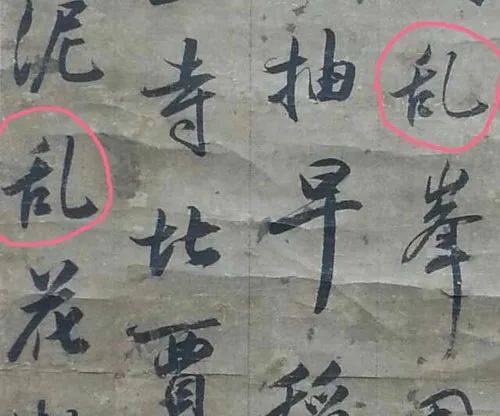 乱峯
抽早
寺北賈
泥乱花